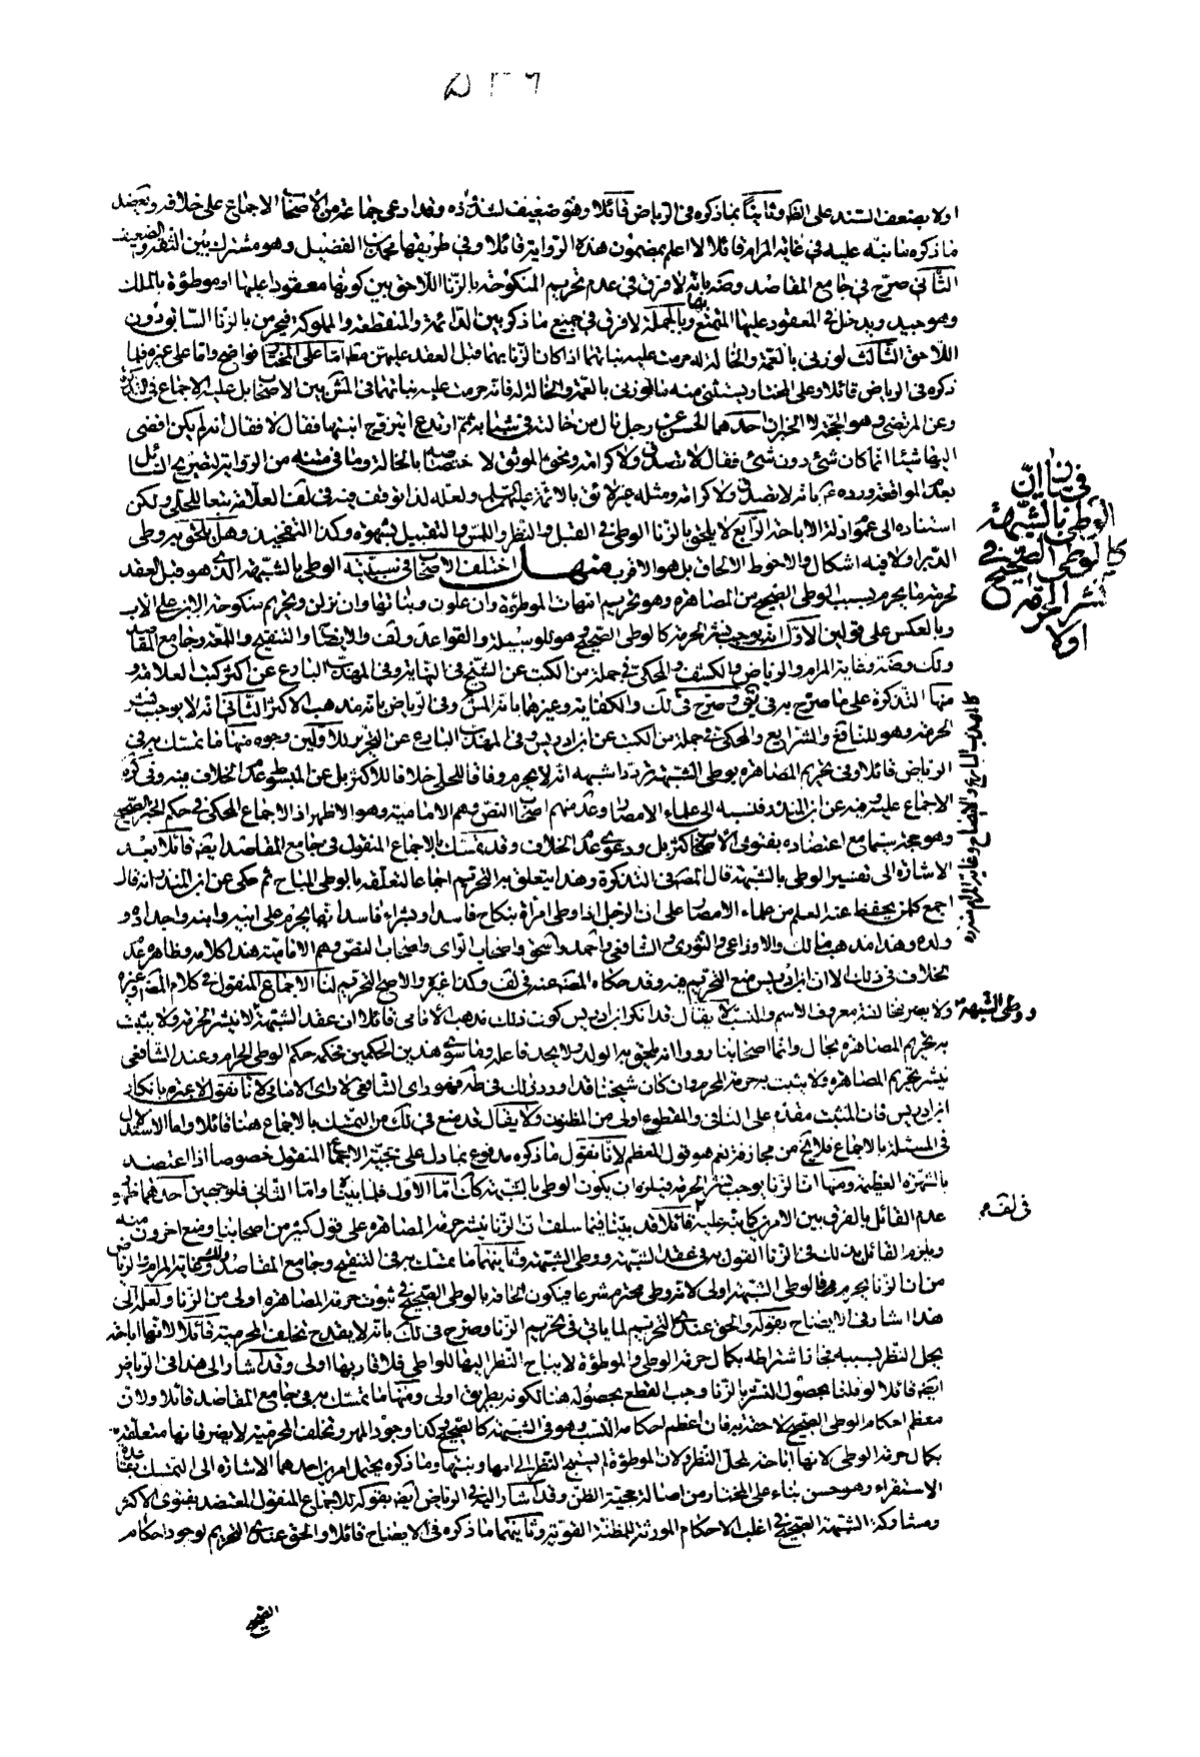 ٥٣٦
اولا بضعف السند على الظ وثانيًا بما ذكره فى الرياض قائلا وهو ضعيف لشذوذه وقد ادعى جماعة من الأصحاب الاجماع على خلافه ويعضد
ما ذكره ما نبه عليه فى غاية المرام قائلا لا اعلم بمضمون هذه الرواية قائلا وفى طريقها محمد بن الفضيل وهو مشترك بين الثقة والضعيف
الثانى صرح فى جامع المقاصد وضه بانه لا فرق فى عدم تحريم المنكوحة بالزنا اللاحق بين كونها معقودا عليها او موطؤة بالملك
وهو جيد ويدخل فى المعقود عليها المتمتع بها وبالجملة لا فرق فى جميع ما ذكر بين الدائمة والمنقطعة والمملوكة فيحرمن بالزنا السابق دون
اللاحق الثالث لو زنى بالعمة والخالة حرمت عليه بناتهما اذا كان الزنا بهما قبل العقد عليهن اما على المختار فواضح واما على غيره فلما
ذكره فى الرياض قائلا وعلى المختار ويستثنى منه ما لو زنى بالعمة والخالة فانه حرمت عليه بناتهما فى المش بين الاصحاب بل عليه الاجماع فى
وعن المرتضى وهو الحجة لا الخبران احدهما الحسن عن رجل نال من خالته فى شبابه ثم ارتدع ايتزوج ابنتها فقال لا فقال انه لم يكن افضى
اليها شيئا انما كان شئ دون شئ فقال لا يصدق ولا كرامة ونحوه الموثق لاختصاصهما بالخالة وما فى متنه من الرواية لتصريح السائل
بعدم المواقعة ورده ع بانه لا يصدق ولا كرامة ومثله غير لائق بالائمة عليهم السلام ولعله لذا توقف فيه فى لف العلامة تبعا للحلى ولكن
استناده الى عموم ادلة الاباحة الرابع لا يلحق بالزنا الوطى فى القبل والنظر واللمس والتقبيل بشهوة وكذا التفخيذ وهل يلحق به وطى
الدبر او لا فيه اشكال والاحوط الالحاق بل هو الاقرب منهل اختلف الاصحاب فى سببية الوطى بالشبهة الذى هو قبل العقد
لحرمة ما يحرم بسبب الوطى الصحيح من المصاهرة وهو تحريم امهات الموطؤة وان علون وبناتها وان نزلن وتحريم منكوحة الابن على الاب
وبالعكس على قولين الاول انه يوجب نشر الحرمة كالوطى الصحيح وهو للوسيلة والقواعد ولف والايضاح والتنقيح واللمعة وجامع المقاصد
ولك وضه وغاية المرام والرياض والكشف والمحكى فى جملة من الكتب عن الشيخ فى النهاية وفى المهذب البارع عن اكثر كتب العلامة و
منها التذكرة على ما صرح به فى وصرح فى لك والكفاية وغيرهما بانه المش وفى الرياض بانه مذهب الاكثر الثانى انه لا يوجب نشر
الحرمة وهو للنافع والشرايع والمحكى فى جملة من الكتب عن ابن ادريس وفى المهذب البارع عن التحرير للاولين وجوه منها ما تمسك به فى
الرياض قائلا وفى تحريم المصاهرة بوطى الشبهة تردد اشبهه انه لا يحرم وفاقا للحلى خلافا للاكثر بل عن المبسوط عدم الخلاف فيه وفى كره
الاجماع عليه وفيه عن ابن المنذر فنسبه الى علماء الامصار وعد منهم اصحاب النص وهم الامامية وهو الاظهر اذ الاجماع المحكى فى حكم الخبر الصحيح
وهو حجة سيما مع اعتضاده بفتوى الاصحاب كثر بل ودعوى عدم الخلاف وقد تمسك بالاجماع المنقول فى جامع المقاصد ايضه قائلا بعد
الاشارة الى تفسير الوطى بالشبهة قال المصنف فى التذكرة وهذا يتعلق به التحريم اجماعا لتعلقه بالوطى المباح ثم حكى عن ابن المنذر انه قال
اجمع كل من يحفظ عنه العلم من علماء الامصار على ان الرجل اذا وطى امراة بنكاح فاسد او بشراء فاسد انها يحرم على ابيه وابنه واجداده و
ولده وهذا مذهب مالك والاوزاعى والثورى والشافعى واحمد واسحق واصحاب الراى واصحاب النص وهم الامامية هذا كلامه وظاهره عدم
الخلاف فى ذلك الا ان ابن ادريس منع التحريم فيه وقد حكاه المصنف عنه فى لف وكذا غيره والاصح التحريم لنا الاجماع المنقول فى كلام المصنف وغيره
ولا يضر مخالفة معروف الاسم والنسب لا يقال قد انكر ابن ادريس كون ذلك مذهب الامامى قائلا ان عقد الشبهة لا ينشر الحرمة ولا يثبت
به تحريم المصاهرة بحال وانما اصحابنا رووا انه يلحق به الولد ولا يحد فاعله وما سوى هذين الحكمين فحكمه حكم الوطى الحرام وعند الشافعى
ينشر تحريم المصاهرة ولا يثبت به حرمة المحرم وان كان شيخنا قد اورد ذلك فى طه فهو راى الشافعى لا راى الامامى لانا نقول لا عبرة بانكار
ابن ادريس فان المثبت مقدم على النافى والمقطوع اولى من المظنون ولا يقال قد منع فى لك من التمسك بالاجماع هنا قائلا واما الاستدلال
فى المسئلة بالاجماع فلا يخ من مجازفة نعم هو قول المعظم لانا نقول ما ذكره مدفوع بما دل على حجية الاجماع المنقول خصوصا اذا اعتضد
بالشهرة العظيمة ومنها ان الزنا يوجب نشر الحرمة فيلزم ان يكون الوطى بالشبهة كك اما الاول فلما بينا واما الثانى فلوجهين احدهما ظهور
عدم القائل بالفرق بين الامرين كما نبه عليه قائلا قد بينا فيما سلف ان الزنا ينشر حرمة المصاهرة على قول كثير من اصحابنا ومنع اخرون منه
ويلزم القائل بذلك فى الزنا القول به فى عقد الشبهة ووطى الشبهة وثانيهما ما تمسك به فى التنقيح وجامع المقاصد ولك وغاية المرام والرياض
من ان الزنا يحرم فالوطى الشبهة اولى لانه وطى محترم شرعا فيكون الحاقه بالوطى الصحيح فى ثبوت حرمة المصاهرة اولى من الزنا ولعله الى
هذا اشار فى الايضاح بقوله والحق عندى التحريم لما ياتى فى تحريم الزنا وصرح فى لك بانه لا يقدح تخلف المحرمية قائلا لانها اباحة
بحل النظر بسببه فجاز اشتراطه بكمال حرمة الوطى والموطؤة لا يباح النظر اليها للواطى فلاقاربها اولى وقد اشار الى هذا فى الرياض
ايضه قائلا لو قلنا بحصول النشر بالزنا وجب القطع بحصوله هنا لكونه بطريق اولى ومنها ما تمسك به فى جامع المقاصد قائلا ولان
معظم احكام الوطى الصحيح لاحقة به فان اعظم احكامه النسب وهو فى الشبهة كالصحيح وكذا وجود المهر وتخلف المحرمية لا يضر فانها متعلقة
بكمال حرمة الوطى لانها اباحة لمحل النظر ولان الموطؤة لم يستبح النظر الى امها وبنتها وما ذكره يحتمل امرين احدهما الاشارة الى التمسك بقاعدة
الاستقراء وهو حسن بناء على المختار من اصالة حجية الظن وقد اشار اليه فى الرياض ايضه بقوله للاجماع المنقول المعتضد بفتوى الاكثر
ومشاركة الشبهة الصحيح فى اغلب الاحكام المورثة للمظنة القوية وثانيهما ما ذكره فى الايضاح قائلا والحق عندى التحريم لوجود احكام
الصحيح
فى بيان ان
الوطى بالشبهة
كالوطى الصحيح فى
نشر الحرمة
اولا
ووطى الشبهة
فى لف